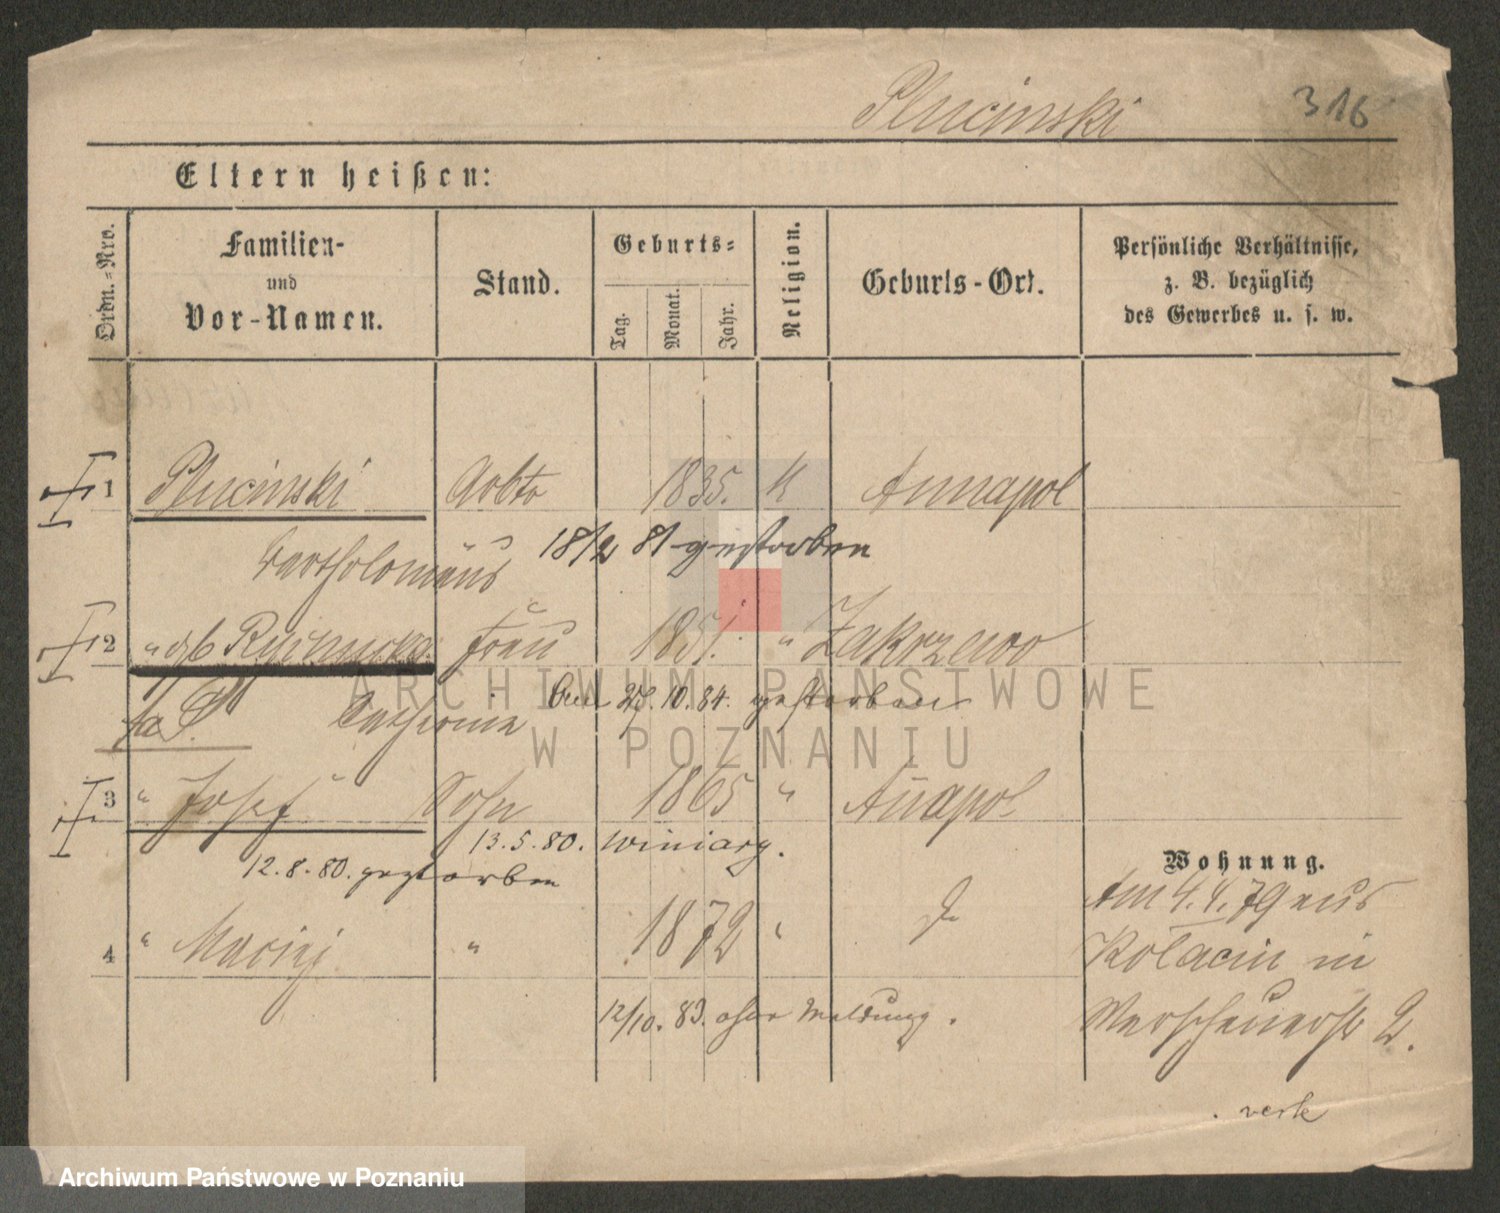 Plucinski 316
Eltern heißen:
Ordn.=Nro.
Familien-
und
Vor-Namen.
Stand.
Geburts=
Tag.
Monat.
Jahr.
Religion.
Geburts-Ort.
Persönliche Verhältnisse,
z. B. bezüglich
des Gewerbes u. s. w.
1 Plucinski Arbtr 1835. K Annapol
Bartholomäus 18/2 81 gestorben
2 " Frau 1851. " Zakrzewo
27.10.84. gestorben
Catharina
3 " Josef Sohn 1865 " Anapol
13.5.80. Winiary.
12.8.80. gestorben
4 " Maciej " 1872 "
12/10. 83. ohne Meldung.
Wohnung.
Am 4.4.79 aus
Kolacin in
2.
ARCHIWUM PAŃSTWOWE
W POZNANIU
Archiwum Państwowe w Poznaniu